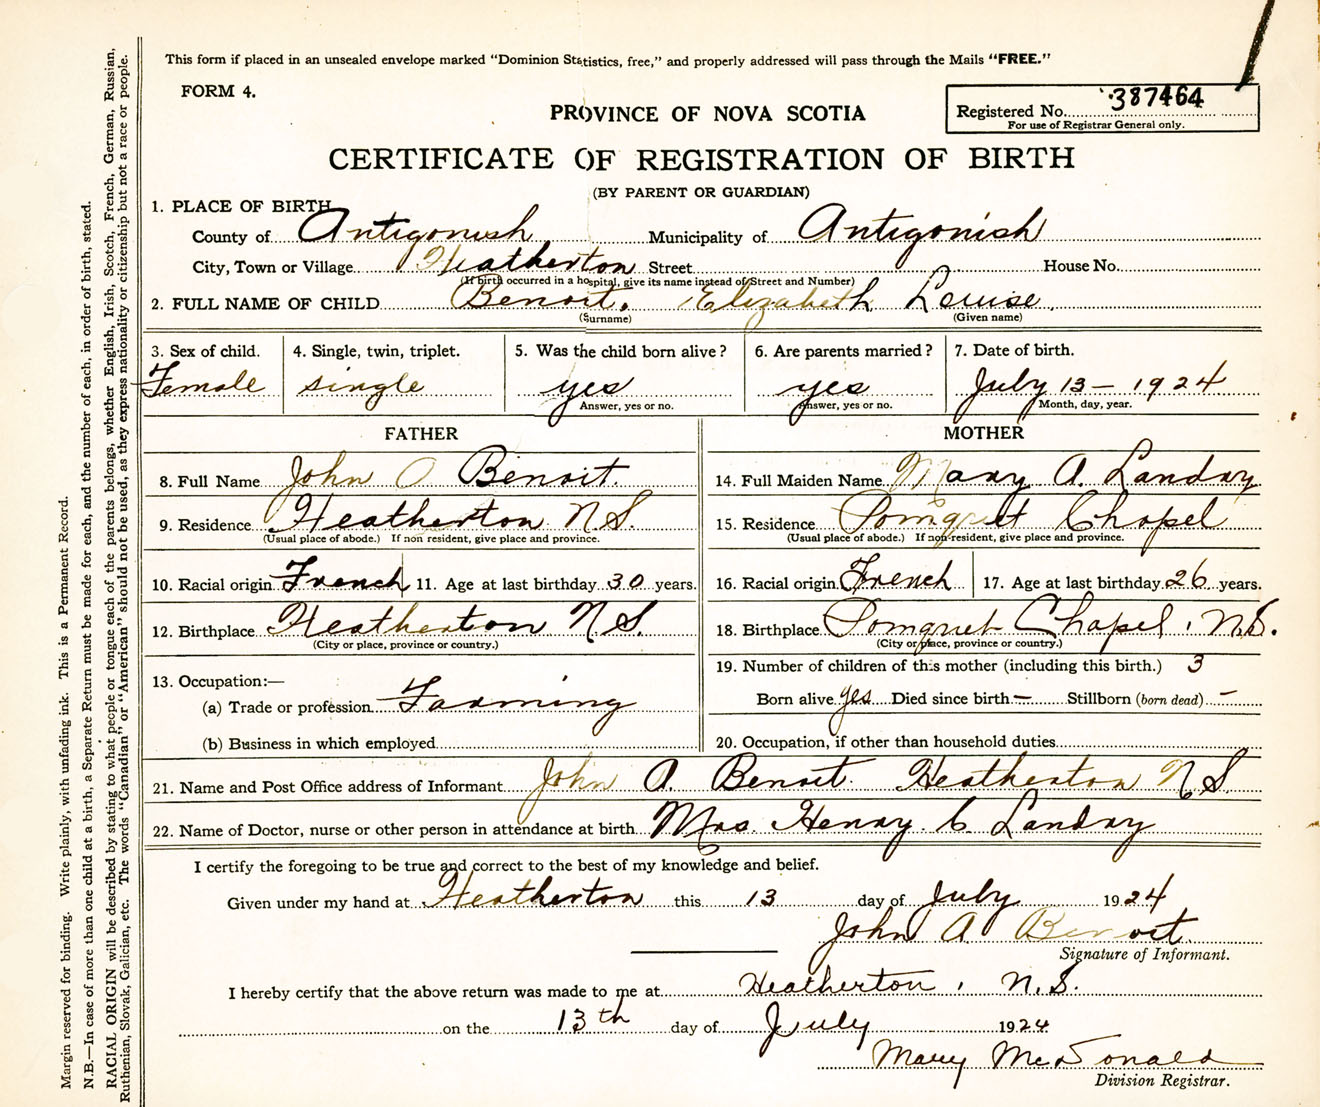 This form if placed in an unsealed envelope marked "Dominion Statistics, free," and properly addressed will pass through the Mails "FREE."
FORM 4.
Registered No. 387464
For use of Registrar General only.
PROVINCE OF NOVA SCOTIA
CERTIFICATE OF REGISTRATION OF BIRTH
(BY PARENT OR GUARDIAN)
1. PLACE OF BIRTH
County of Antigonish Municipality of Antigonish
City, Town or Village Heatherton Street House No.
(If birth occurred in a hospital, give its name instead of Street and Number)
2. FULL NAME OF CHILD Benoit. Elizabeth Louise
(Surname) (Given name)
3. Sex of child. 4. Single, twin, triplet. 5. Was the child born alive? 6. Are parents married? 7. Date of birth.
Female single yes yes July 13 - 1924
Answer, yes or no. Answer, yes or no. Month, day, year.
FATHER
8. Full Name John A Benoit.
9. Residence Heatherton N.S.
(Usual place of abode.) If non resident, give place and province.
10. Racial origin French 11. Age at last birthday 30 years.
12. Birthplace Heatherton N.S.
(City or place, province or country.)
13. Occupation:—
(a) Trade or profession Farming
(b) Business in which employed
MOTHER
14. Full Maiden Name Mary A. Landry
15. Residence Pomquet Chapel
(Usual place of abode.) If non-resident, give place and province.
16. Racial origin French 17. Age at last birthday 26 years.
18. Birthplace Pomquet Chapel, N.S.
(City or place, province or country.)
19. Number of children of this mother (including this birth.) 3
Born alive yes Died since birth — Stillborn (born dead) -
20. Occupation, if other than household duties
21. Name and Post Office address of Informant John A. Benoit. Heatherton N.S
22. Name of Doctor, nurse or other person in attendance at birth Mrs. Henry C. Landry
I certify the foregoing to be true and correct to the best of my knowledge and belief.
Given under my hand at Heatherton this 13 day of July 1924
John A Benoit.
Signature of Informant.
I hereby certify that the above return was made to me at Heatherton, N.S.
on the 13th day of July 1924
Mary McDonald
Division Registrar.
Margin reserved for binding. Write plainly, with unfading ink. This is a Permanent Record.
N.B.—In case of more than one child at a birth, a Separate Return must be made for each, and the number of each, in order of birth, stated.
RACIAL ORIGIN will be described by stating to what people or tongue each of the parents belongs, whether English, Irish, Scotch, French, German, Russian,
Ruthenian, Slovak, Galician, etc. The words "Canadian" or "American" should not be used, as they express nationality or citizenship but not a race or people.